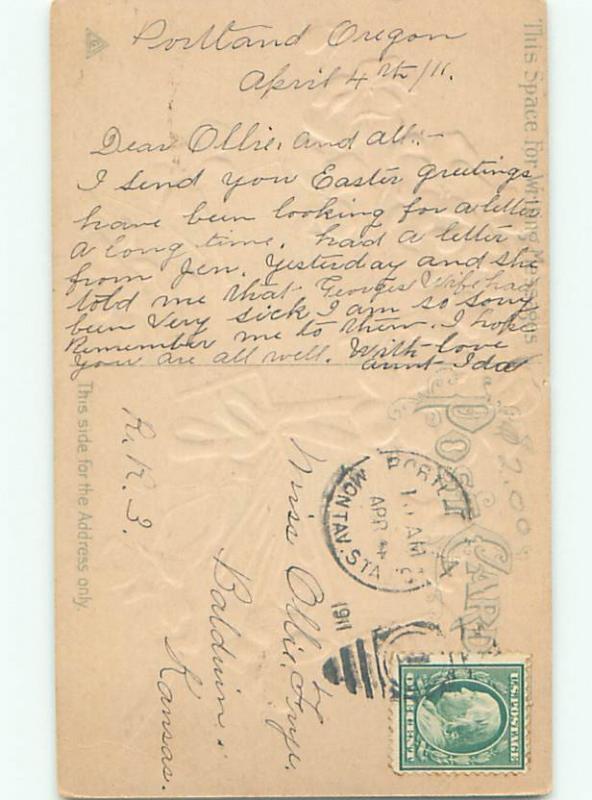 Portland Oregon
April 4th/11.
Dear Ollie, and all:-
I send you Easter greetings
have been looking for a letter
a long time, had a letter
from Jen. Yesterday and she
told me that Georges Wife had
been Very sick I am so sorry
Remember me to them. I hope
you are all well. With love
aunt Ida
This Space for Writing Messages
This side for the Address only.
POST CARD
$2.00
PORTLA
MONTAV. STA
APR 4
AM
1911
Miss Ollie
Baldwin,
Kansas.
R.R. 3.
U.S. POSTAGE
ONE CENT